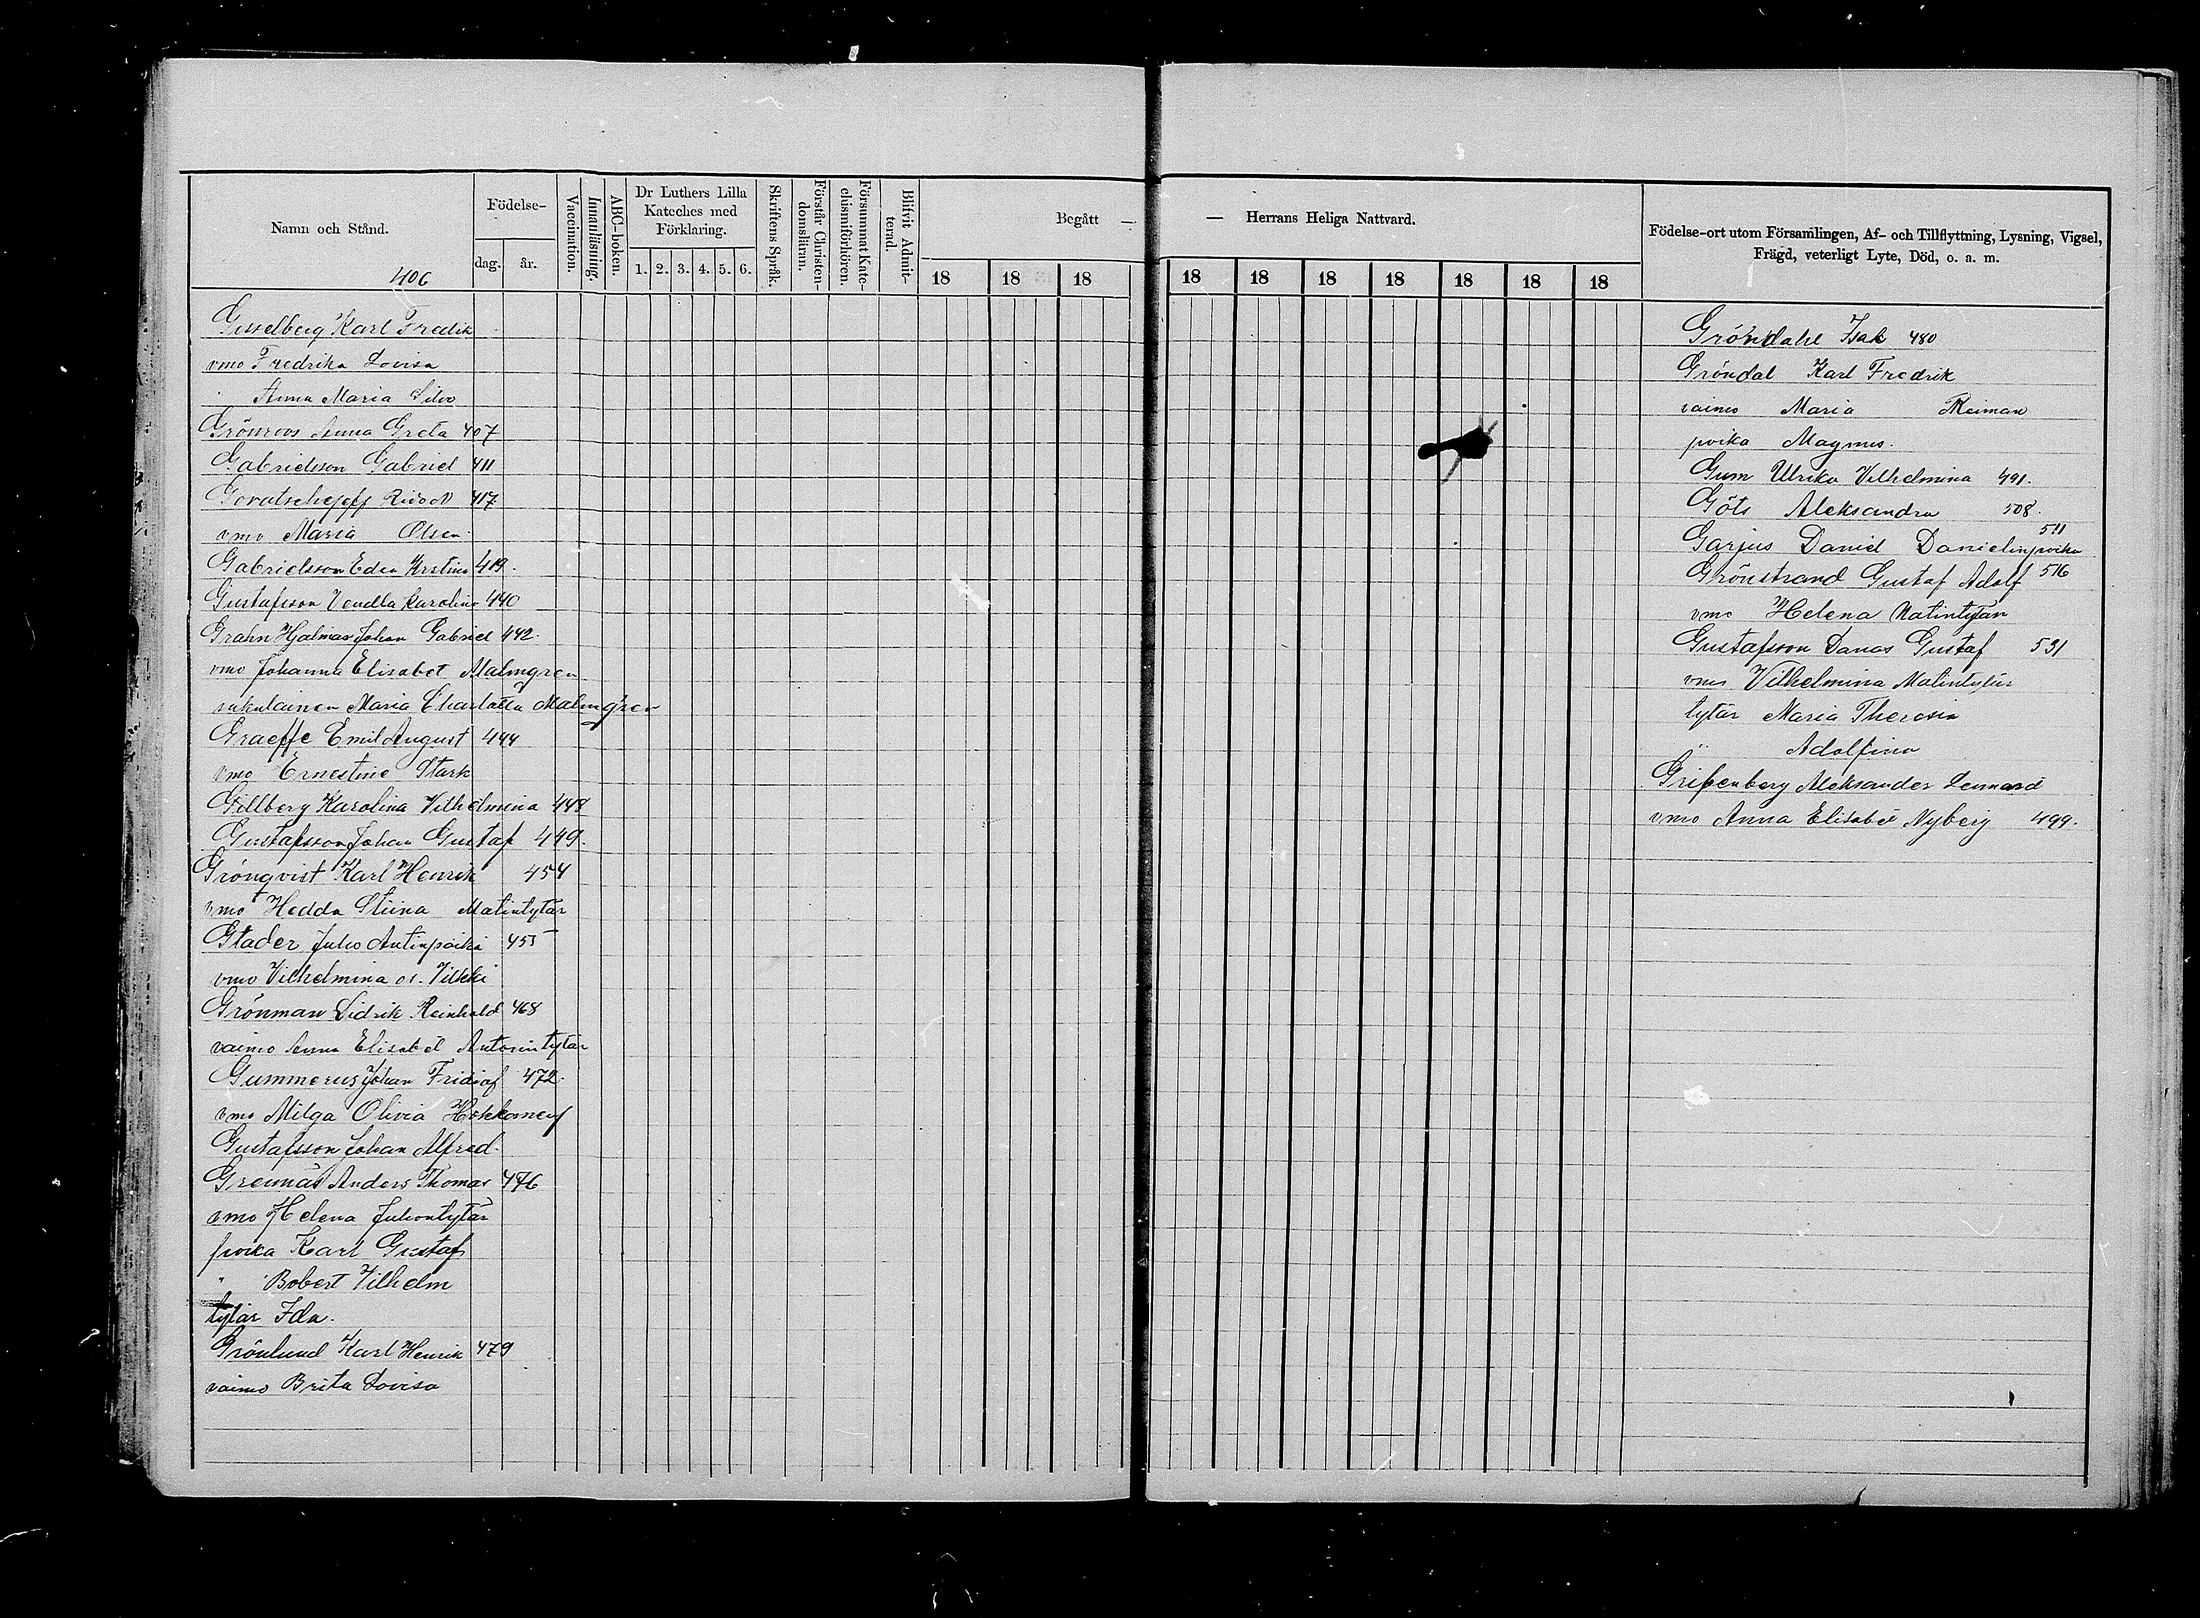 Namn och Stånd.
406
Födelse-
dag.
år.
Vaccination.
Innanläsning.
ABC-boken.
Dr Luthers Lilla
Kateches med
Förklaring.
1. 2. 3. 4. 5. 6.
Skriftens Språk.
Förstår Christen-
domsläran.
Försummat Kate-
chismiförhören.
Blifvit Admit-
terad.
Begått —
18 18 18
Gisselberg Karl Fredik
vmo Fredrika Lovisa
Anna Maria Silvo
Grönroos Anna Greta 407
Gabrielsson Gabriel 411
417
vmo Maria Olsen
Gabrielsson Edla Kristina 419.
Gustafsson Vendla Karolina 440
Grahn Hjalmar Johan Gabriel 442.
vmo Johanna Elisabet Malmgren
sukulainen Maria Charlotta Malmgren
Graeffe Emil August 444
vmo Ernestine Stark
Gillberg Karolina Vilhelmina 448
Gustafsson Johan Gustaf 449.
Grönqvist Karl Henrik 454
vmo Hedda Stiina Matintytär
Glader Juho Antinpoika 455
vmo Vilhelmina os. Vilkki
Grönman Didrik Reinhold 468
vaimo Anna Elisabet Antonintytär
Gummerus Johan Fridiof 472.
vmo Milga Olivia
Gustafsson Johan Alfred.
Grennäs Anders Thomas 476
vmo Helena Juhontytär
poika Karl Gustaf
" Robert Vilhelm
tytär Ida.
Grönlund Karl Henrik 479
vaimo Brita Lovisa
— Herrans Heliga Nattvard.
18 18 18 18 18 18 18
Födelse-ort utom Församlingen, Af- och Tillflyttning, Lysning, Vigsel,
Frägd, veterligt Lyte, Död, o. a. m.
Gröndahl Isak 480
Gröndal Karl Fredrik
vaimo Maria Reiman
poika Magnus.
Gum Ulrika Vilhelmina 491.
Göts Aleksandra 508.
Garjus Daniel Danielinpoika 511
Grönstrand Gustaf Adolf 516
vmo Helena Matintytär
Gustafsson Danas Gustaf 531
vmo Vilhelmina Matintytär
tytär Maria Theresia
" Adolfina
Gripenberg Aleksander Lennard
vmo Anna Elisabet Nyberg 499.